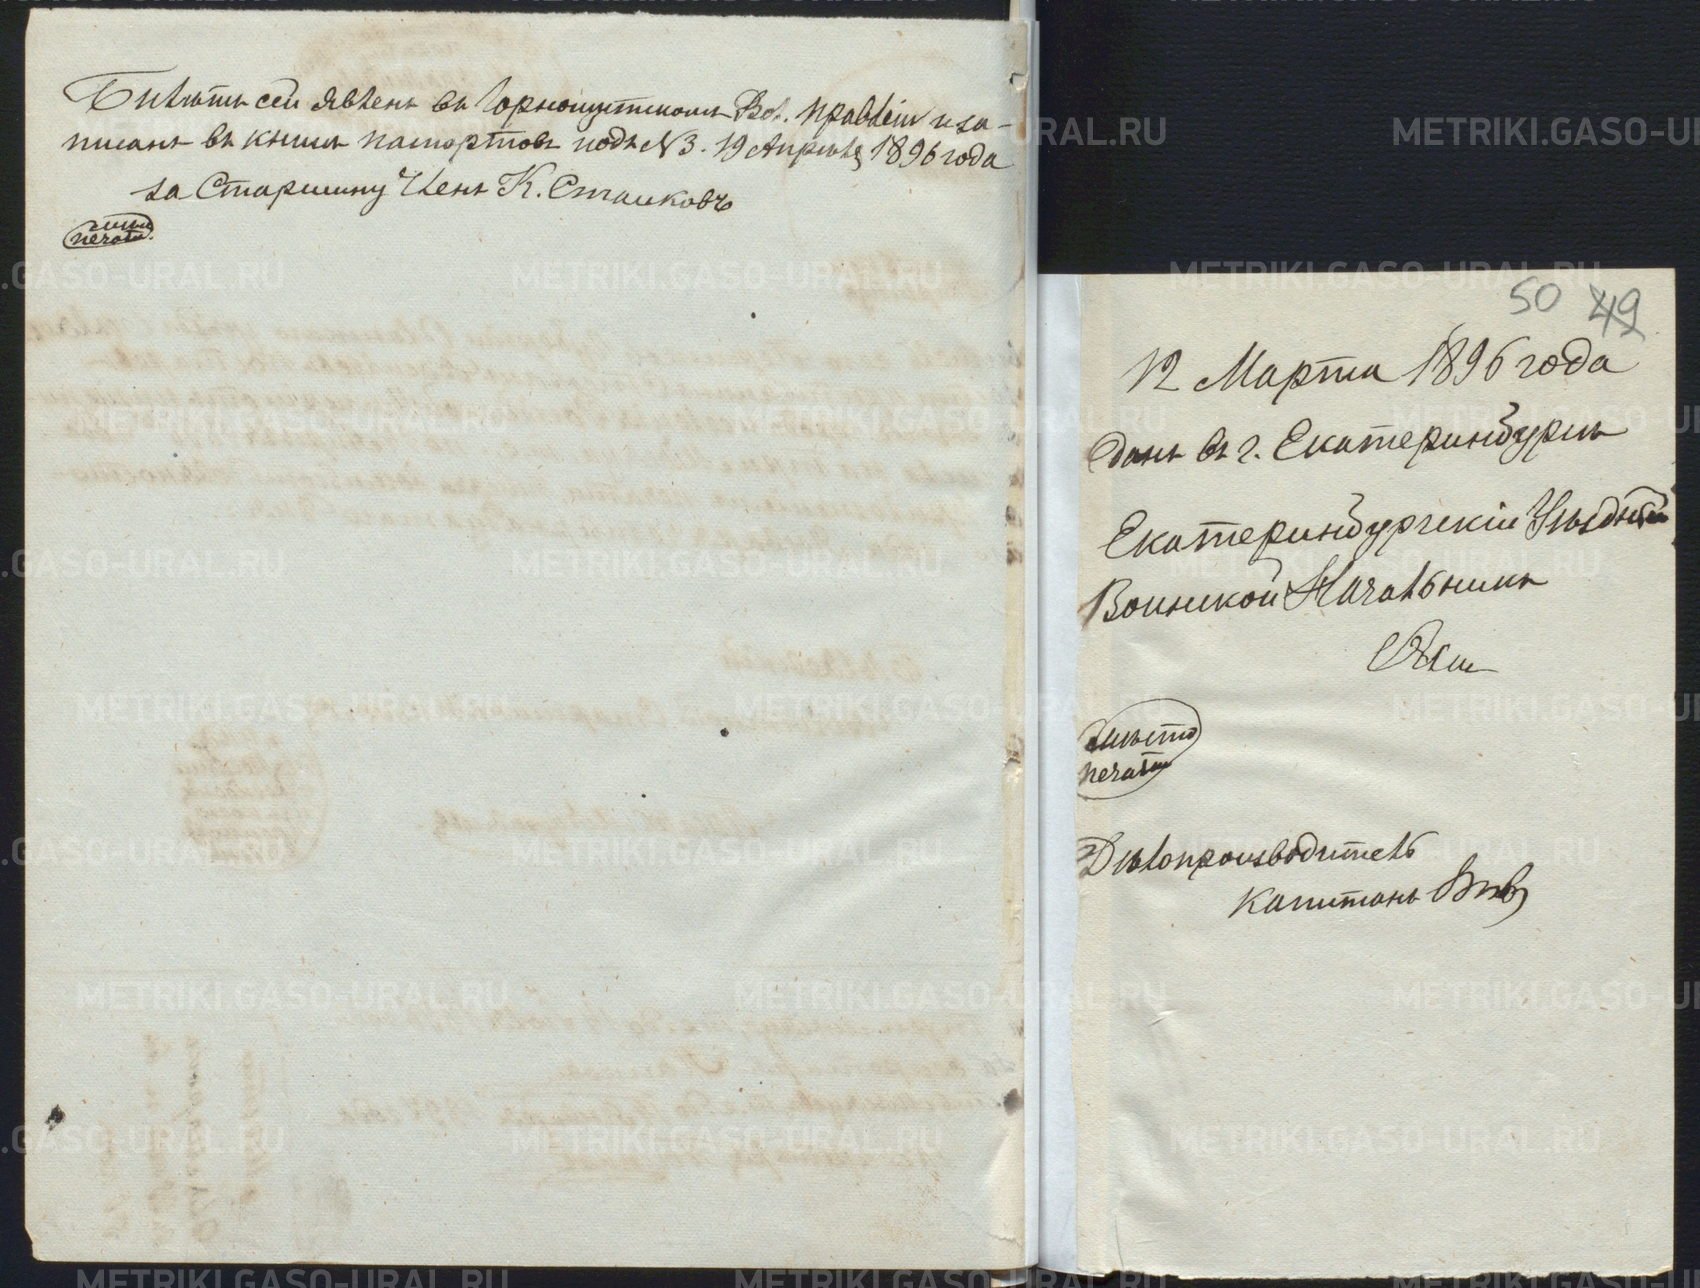 Билетъ сей явленъ въ Горнощитскомъ Вол. правленіи и за-
писанъ въ книгѣ паспортовъ подъ N 3. 19 Апрѣля 1896 года
за Старшину Член К.
мѣсто
печати.
50 49
12 Марта 1896 года
Данъ въ г. Екатеринбургѣ
Екатеринбургскій Уѣздный
Воинской Начальникъ
мѣсто
печати
Дѣлопроизводитель
Капитанъ
METRIKI.GASO-URAL.RU